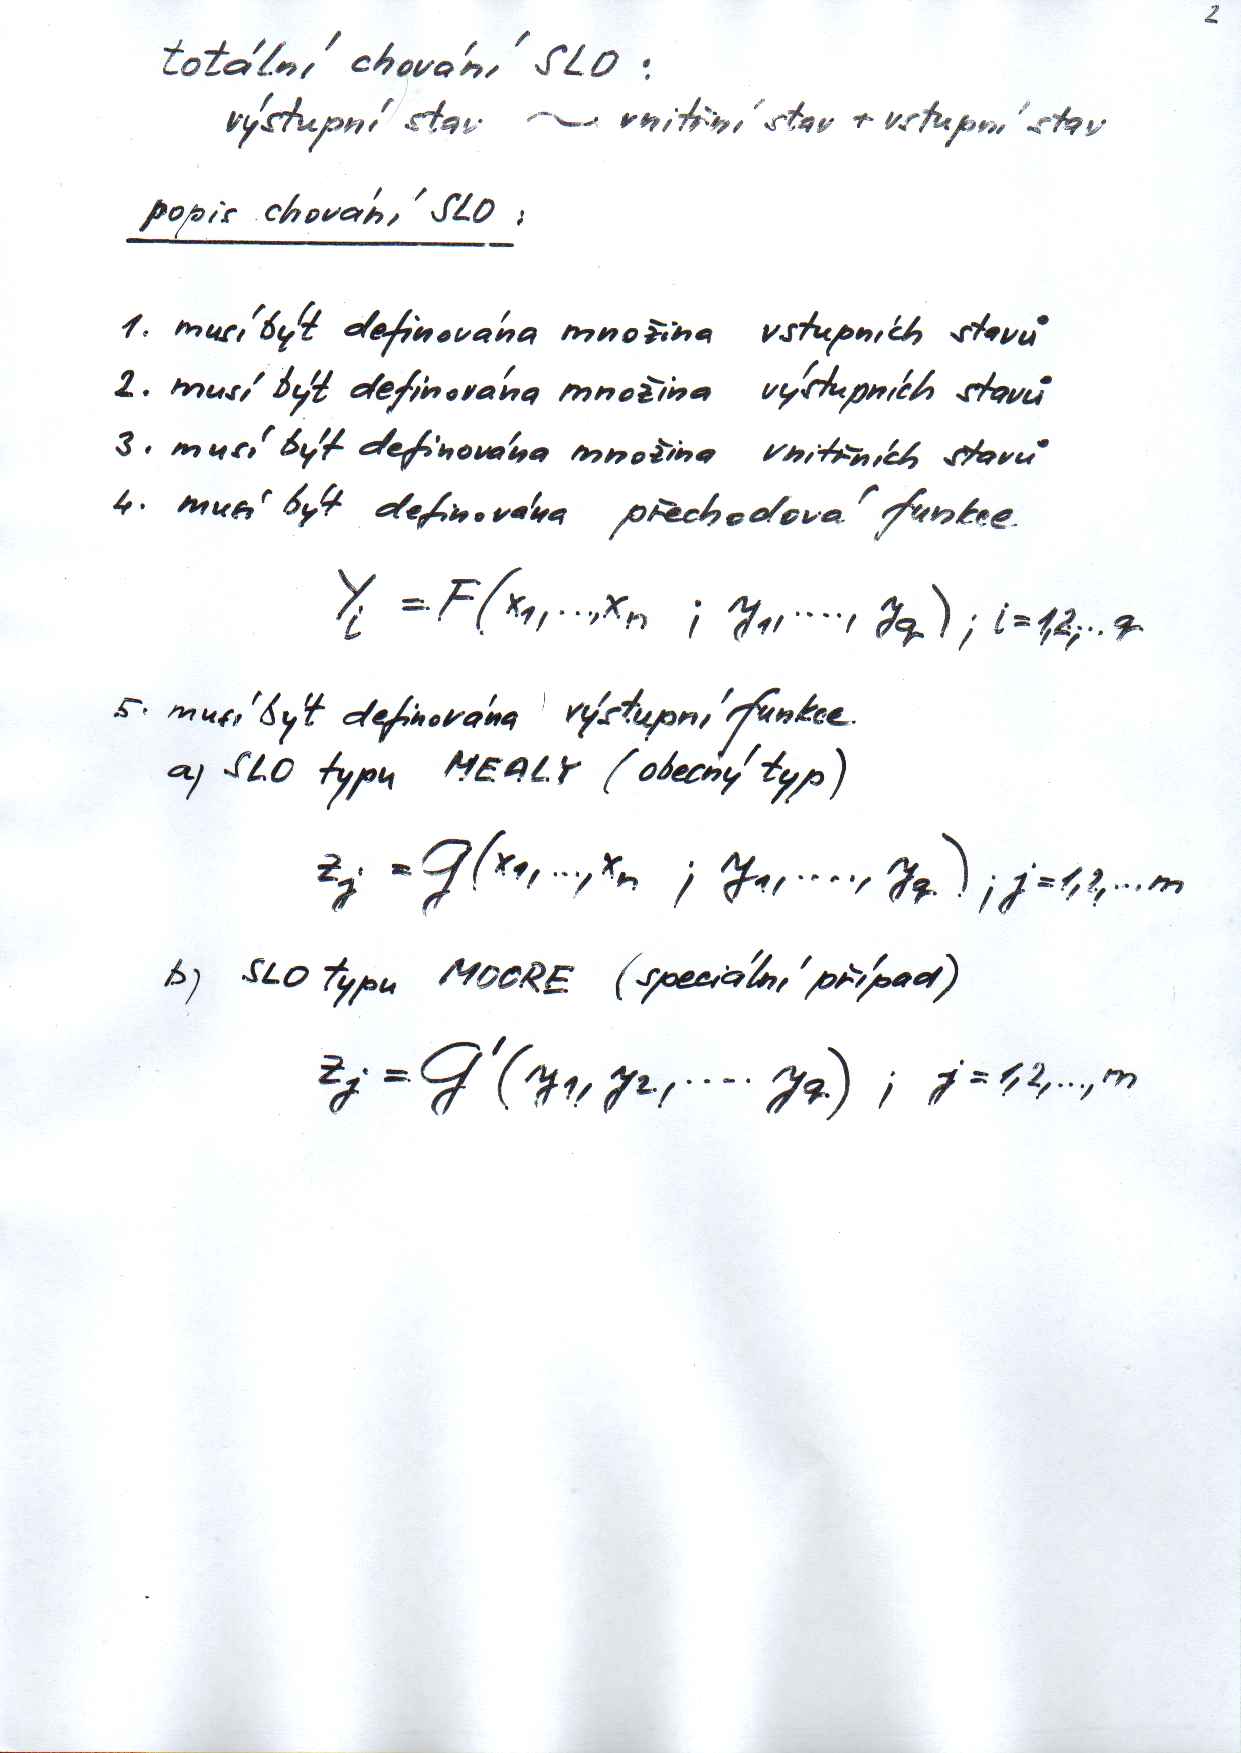 2
totální chování SLO :
výstupní stav ~ vnitřní stav + vstupní stav
popis chování SLO :
1. musí být definována množina vstupních stavů
2. musí být definována množina výstupních stavů
3. musí být definována množina vnitřních stavů
4. musí být definována přechodová funkce
Y_i = F(x_1, ..., x_n ; y_1, ...., y_q) ; i = 1,2,... q
5. musí být definována výstupní funkce.
a) SLO typu MEALY (obecný typ)
z_j = G(x_1, ..., x_n ; y_1, ...., y_q) ; j = 1,2,...m
b) SLO typu MOORE (speciální případ)
z_j = G'(y_1, y_2, .... y_q) ; j = 1,2,..., m